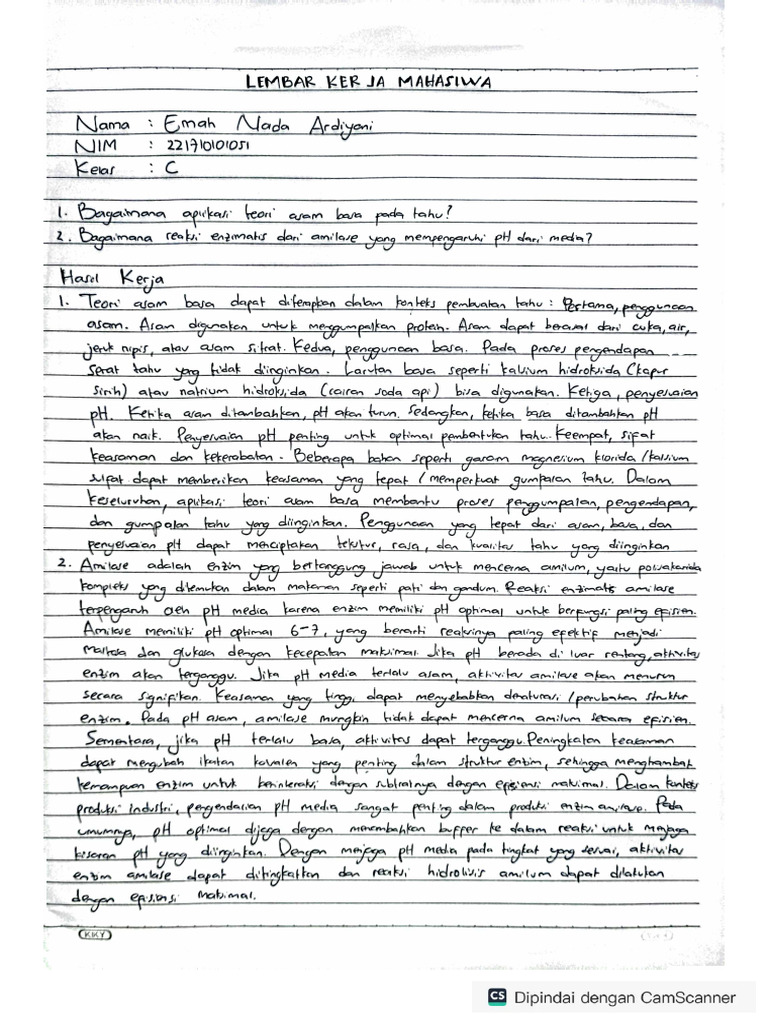 LEMBAR KERJA MAHASIWA
Nama : Emah Nada Ardiyani
NIM : 221710101051
Kelas : C
1. Bagaimana aplikasi teori asam basa pada tahu?
2. Bagaimana reaksi enzimatis dari amilase yang mempengaruhi pH dari media?
Hasil Kerja
1. Teori asam basa dapat diterapkan dalam konteks pembuatan tahu : Pertama, penggunaan
asam. Asam digunakan untuk menggumpalkan protein. Asam dapat berasal dari cuka, air,
jeruk nipis, atau asam sitrat. Kedua, penggunaan basa. Pada proses pengendapan
serat tahu yang tidak diinginkan. Larutan basa seperti kalsium hidroksida (kapur
sirih) atau natrium hidroksida (cairan soda api) bisa digunakan. Ketiga, penyesuaian
pH. Ketika asam ditambahkan, pH akan turun. Sedangkan, ketika basa ditambahkan pH
akan naik. Penyesuaian pH penting untuk optimal pembentukan tahu. Keempat, sifat
keasaman dan kekerabatan. Beberapa bahan seperti garam magnesium klorida /kalsium
sulfat dapat memberikan keasaman yang tepat / memperkuat gumpalan tahu. Dalam
keseluruhan, aplikasi teori asam basa membantu proses penggumpalan, pengendapan,
dan gumpalan tahu yang diinginkan. Penggunaan yang tepat dari asam, basa, dan
penyesuaian pH dapat menciptakan tekstur, rasa, dan kualitas tahu yang diinginkan
2. Amilase adalah enzim yang bertanggung jawab untuk mencerna amilum, yaitu polisakarida
kompleks yang ditemukan dalam makanan seperti pati dan gandum. Reaksi enzimatis amilase
terpengaruh oleh pH media karena enzim memiliki pH optimal untuk berfungsi paling efisien.
Amilase memiliki pH optimal 6-7, yang berarti reaksinya paling efektif menjadi
maltosa dan glukosa dengan kecepatan maksimal. Jika pH berada di luar rentang, aktivitas
enzim akan terganggu. Jika pH media terlalu asam, aktivitas amilase akan menurun
secara signifikan. Keasaman yang tinggi dapat menyebabkan denaturasi /perubahan struktur
enzim. Pada pH asam, amilase mungkin tidak dapat mencerna amilum secara efisien.
Sementara, jika pH terlalu basa, aktivitas dapat terganggu. Peningkatan keasaman
dapat mengubah ikatan kovalen yang penting dalam struktur enzim, sehingga menghambat
kemampuan enzim untuk berinteraksi dengan substratnya dengan efisiensi maksimal. Dalam konteks
produksi industri, pengendalian pH media sangat penting dalam produksi enzim amilase. Pada
umumnya, pH optimal dijaga dengan menambahkan buffer ke dalam reaksi untuk menjaga
kisaran pH yang diinginkan. Dengan menjaga pH media pada tingkat yang sesuai, aktivitas
enzim amilase dapat ditingkatkan dan reaksi hidrolisis amilum dapat dilakukan
dengan efisiensi maksimal.
KKY
CS Dipindai dengan CamScanner